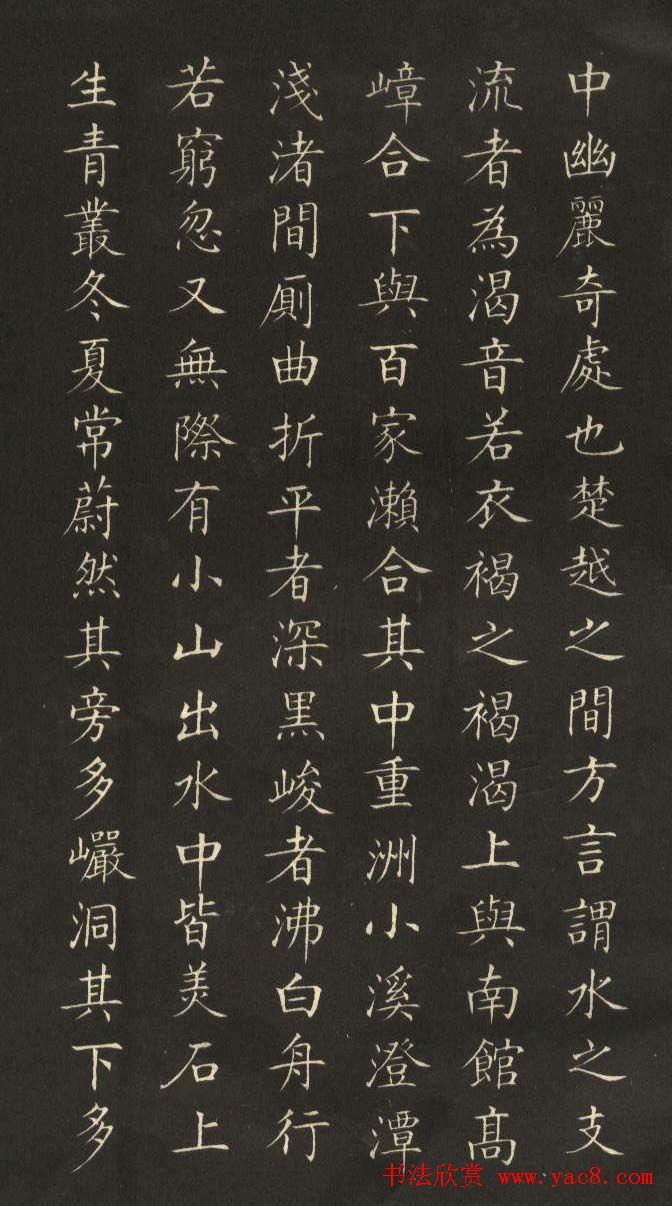 中幽麗奇處也楚越之間方言謂水之支
流者為渴音若衣褐之褐渴上與南館髙
嶂合下與百家瀨合其中重洲小溪澄潭
淺渚間廁曲折平者深黑峻者沸白舟行
若窮忽又無際有小山出水中皆美石上
生青叢冬夏常蔚然其旁多巖洞其下多
书法欣赏 www.yac8.com